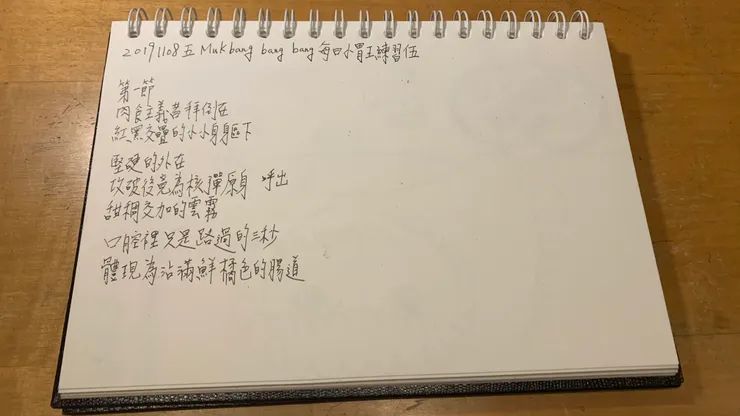 20191108五 Mukbang bang bang 每日小胃王練習伍
第一節
肉食主義者拜倒在
紅黑交疊的小小身軀下
堅硬的外在
攻破後竟為核彈原身 呼出
甜稠交加的雲霧
口腔裡只是路過的三秒
體現為沾滿鮮橘色的腸道